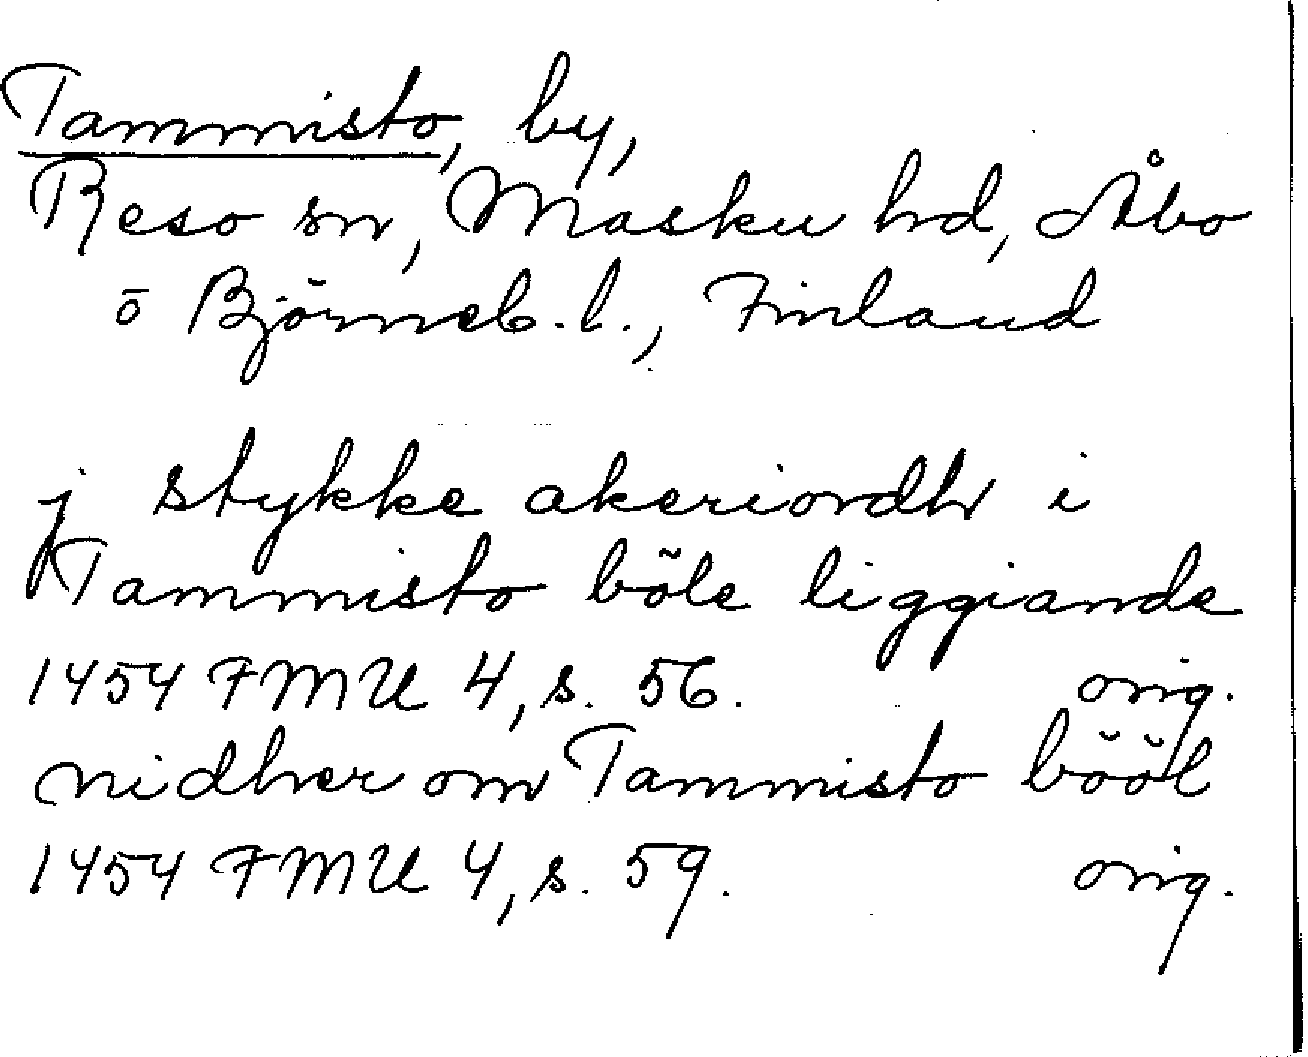 Tammisto, by,
Reso sn, Masku hd, Åbo
o Björneb. l., Finland
j stykke akeriordh i
Tammisto böle liggiande
1454 FMU 4, s. 56. orig.
nidher om Tammisto bööl
1454 FMU 4, s. 59. orig.